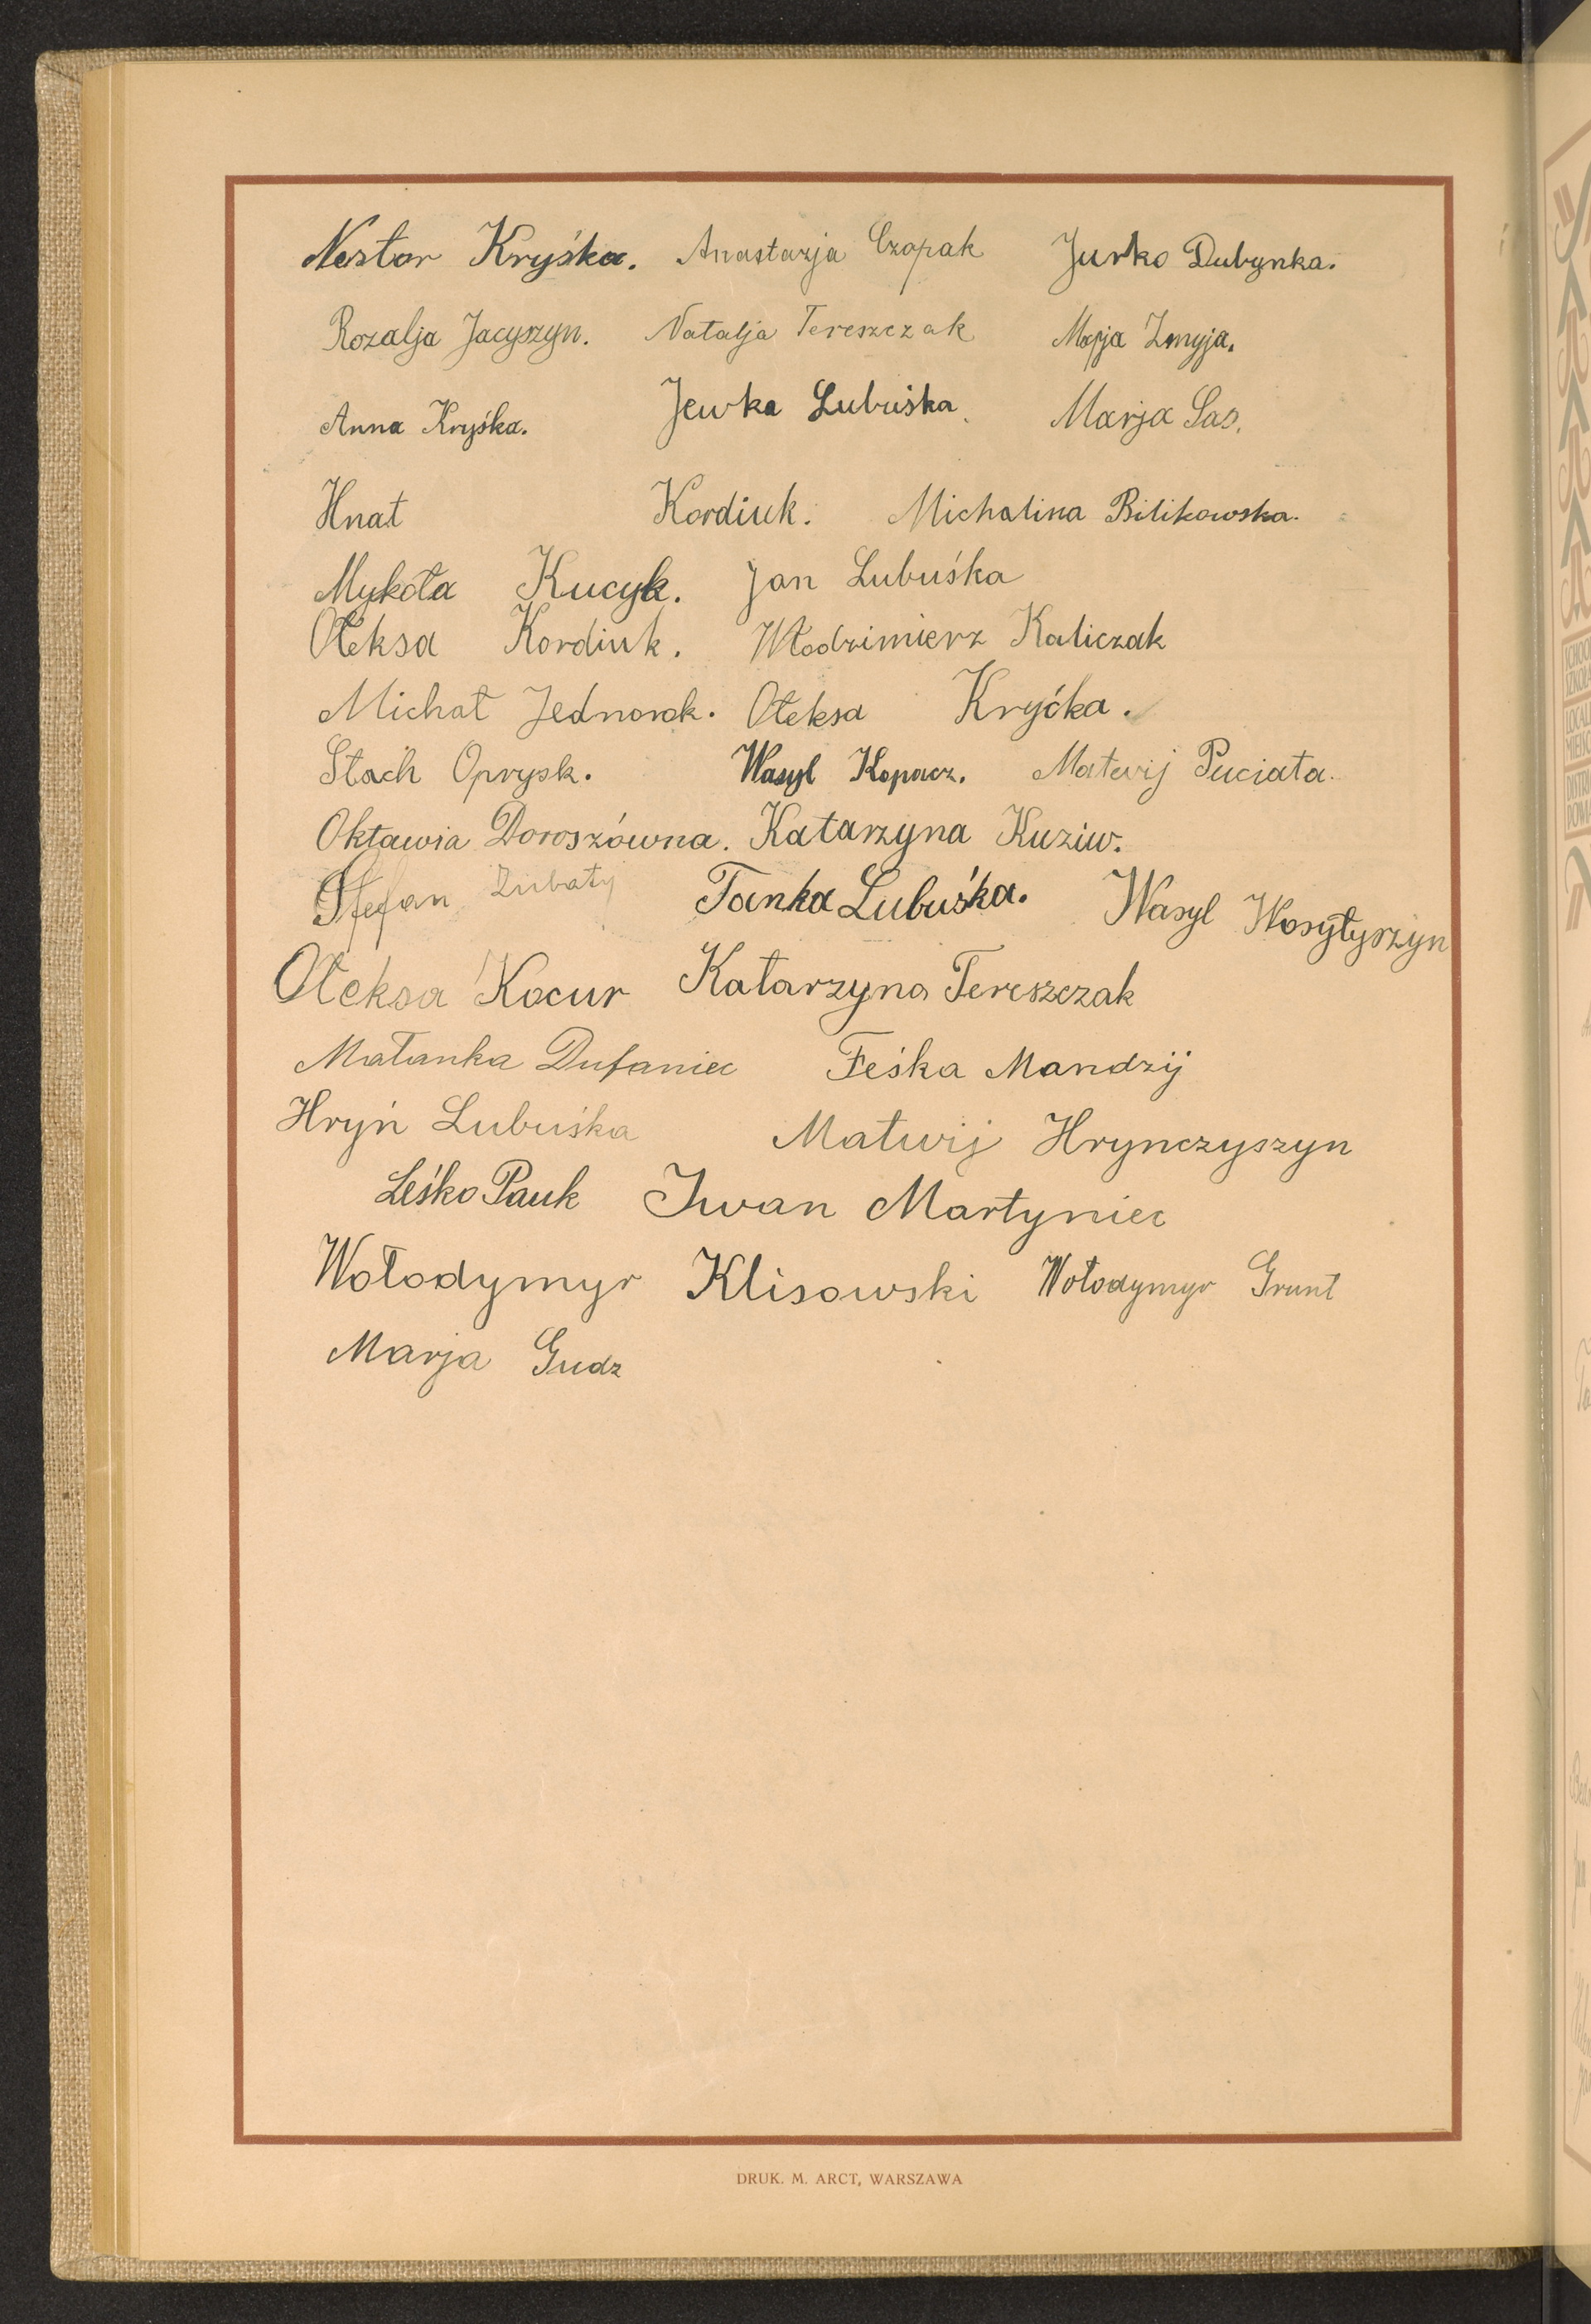 Nestor Kryśka. Anastazja Czopak Jurko Dubynka.
Rozalja Jacyszyn. Natalja Tereszczak Marja Zmyja.
Anna Kryśka. Jewka Lubuśka. Marja Sas.
Hnat Kordiuk. Michalina Bilikowska.
Mykoła Kucyk. Jan Lubuśka
Ołeksa Kordiuk. Włodzimierz Kaliczak
Michał Jednorok. Ołeksa Kryćka.
Stach Oprysk. Wasyl Kopacz. Matwij Puciata.
Oktawia Doroszówna. Katarzyna Kuziw.
Stefan Zubatyj Tańka Lubuśka. Wasyl Wasyłyszyn
Ołeksa Kocur Katarzyna Tereszczak
Małanka Dufaniec Feśka Mandzij
Hryń Lubuśka Matwij Hrynczyszyn
Leśko Pauk Iwan Martyniec
Wołodymyr Klisowski Wołodymyr Grunt
Marja Gudz
DRUK. M. ARCT, WARSZAWA